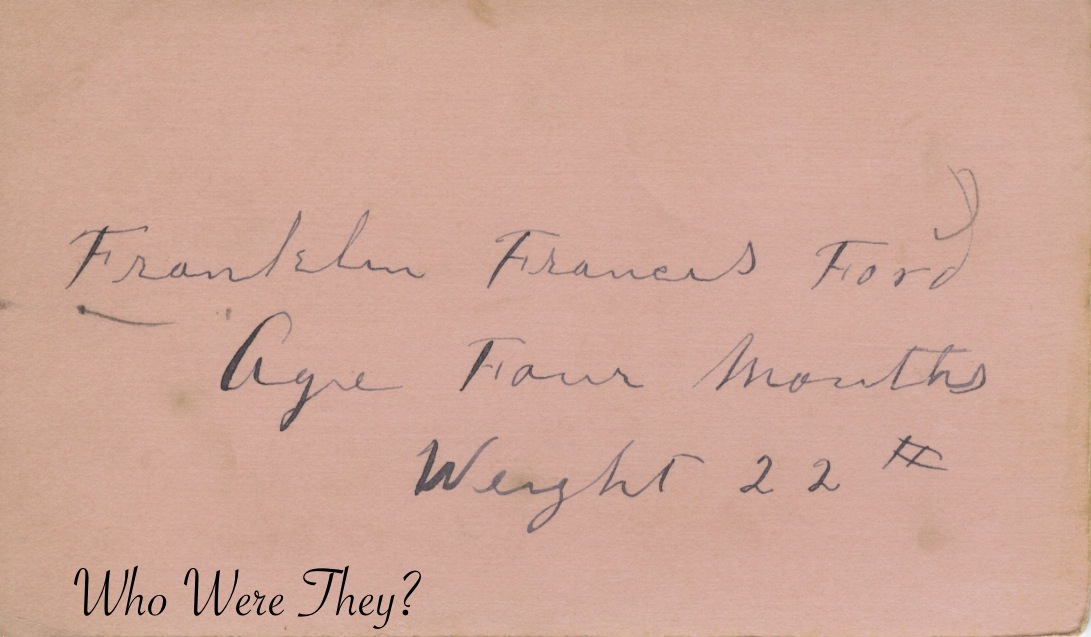 Franklin Francis Ford
Age Four Months
Weight 22 #
Who Were They?